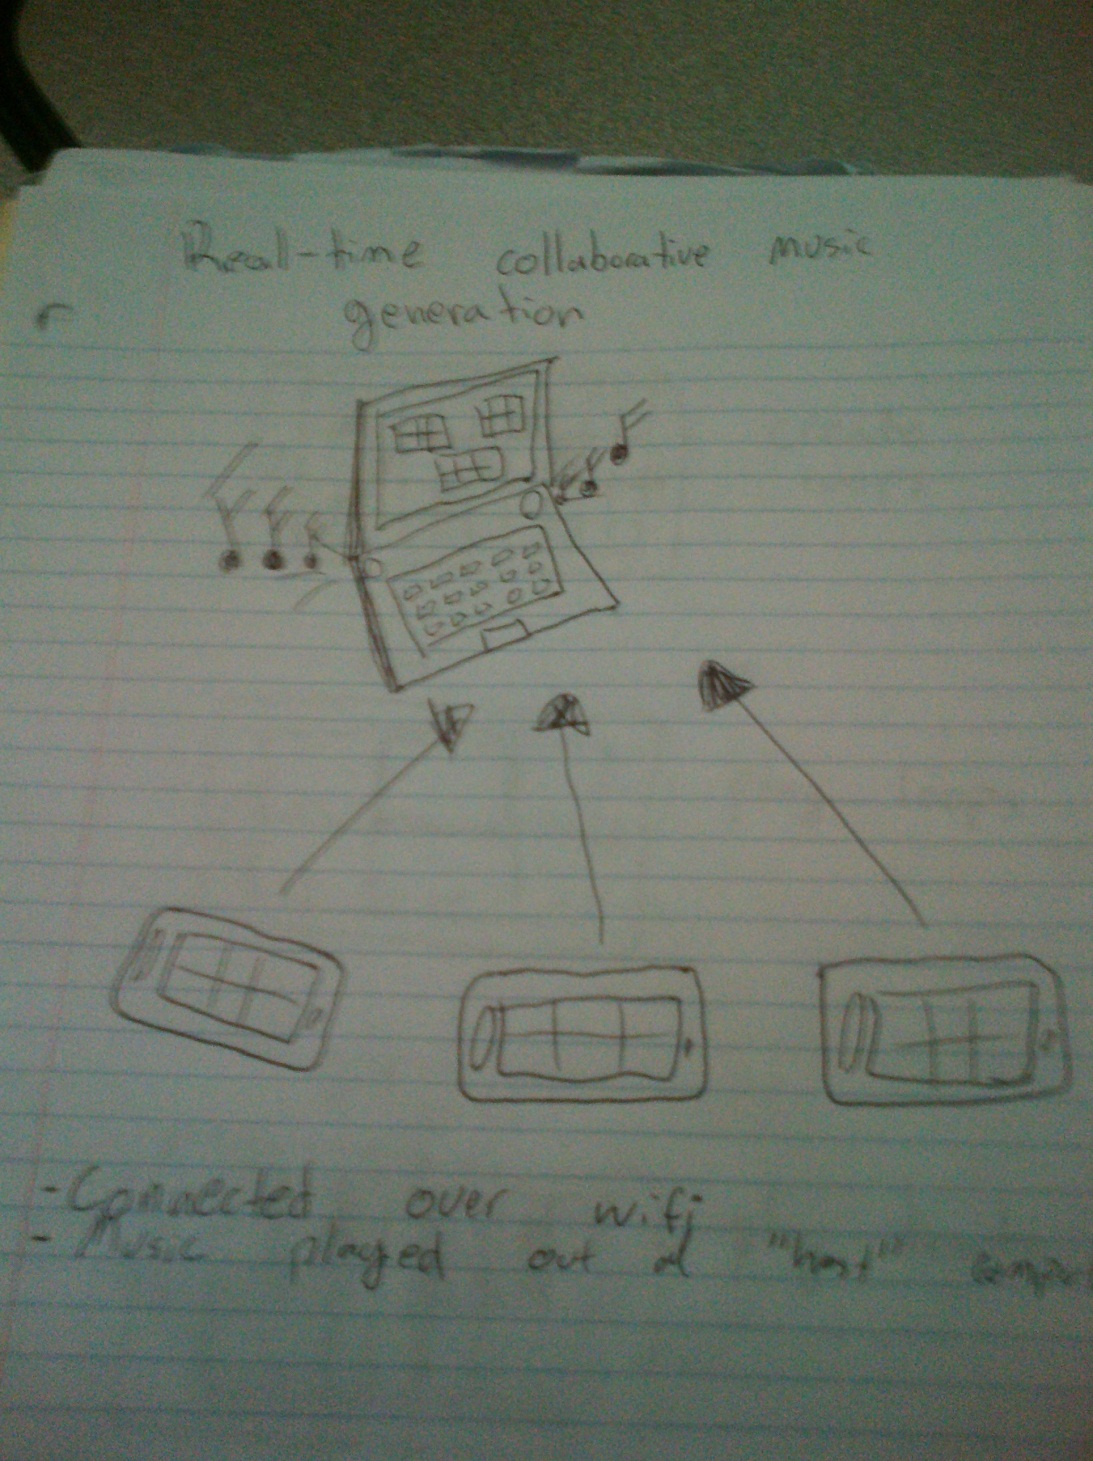 Real-time collaborative music
generation
- Connected over wifi
- Music played out of "host"